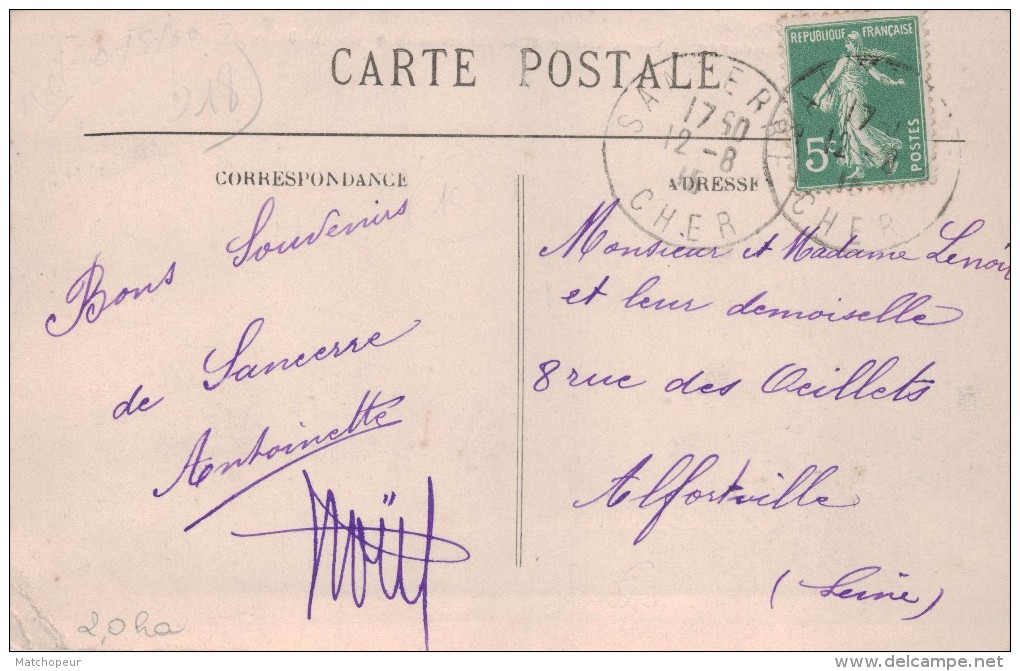 CARTE POSTALE
REPUBLIQUE FRANÇAISE
5c
POSTES
SANCERRE
17 50
12 - 8
CHER
17
12 8
CHER
CORRESPONDANCE
ADRESSE
Bons Souvenirs
de Sancerre
Antoinette
Noël
Monsieur et Madame Lenoir
et leur demoiselle
8 rue des Oeillets
Alfortville
(Seine)
18)
2,0 ha
Matchopeur
delcampe.net